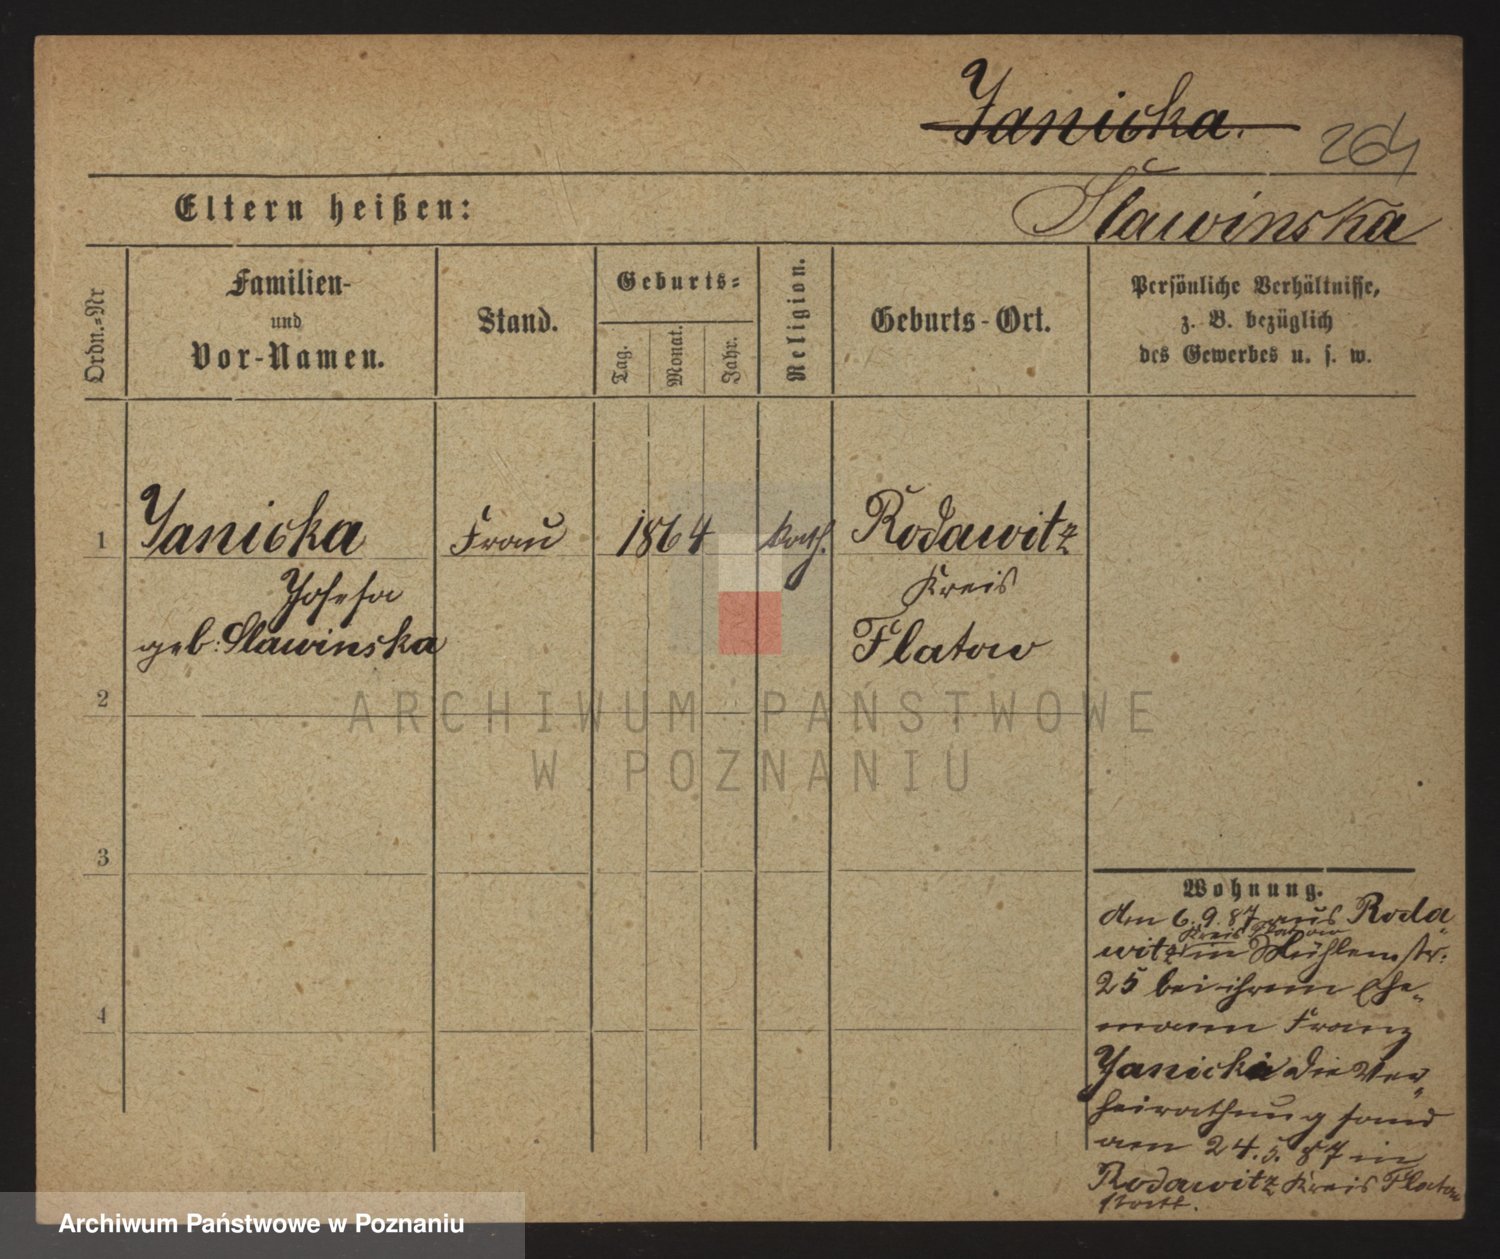 Janicka.
264
Eltern heißen:
Slawinska
Ordn.-Nr
Familien-
und
Vor-Namen.
Stand.
Geburts-
Tag.
Monat.
Jahr.
Religion.
Geburts-Ort.
Persönliche Verhältnisse,
z. B. bezüglich
des Gewerbes u. s. w.
1
Janicka
Frau
1864
kath.
Rodawitz
Josefa
Kreis
geb. Slawinska
Flatow
2
ARCHIWUM PAŃSTWOWE
W POZNANIU
3
Wohnung.
den 6.9.87 aus Roda
Kreis Flatow
witz in Mühlenstr.
25 bei ihrem Ehe-
mann Franz
Janicki die Ver-
heirathung fand
am 24.5.87 in
Rodawitz Kreis Flatow
statt.
4
Archiwum Państwowe w Poznaniu